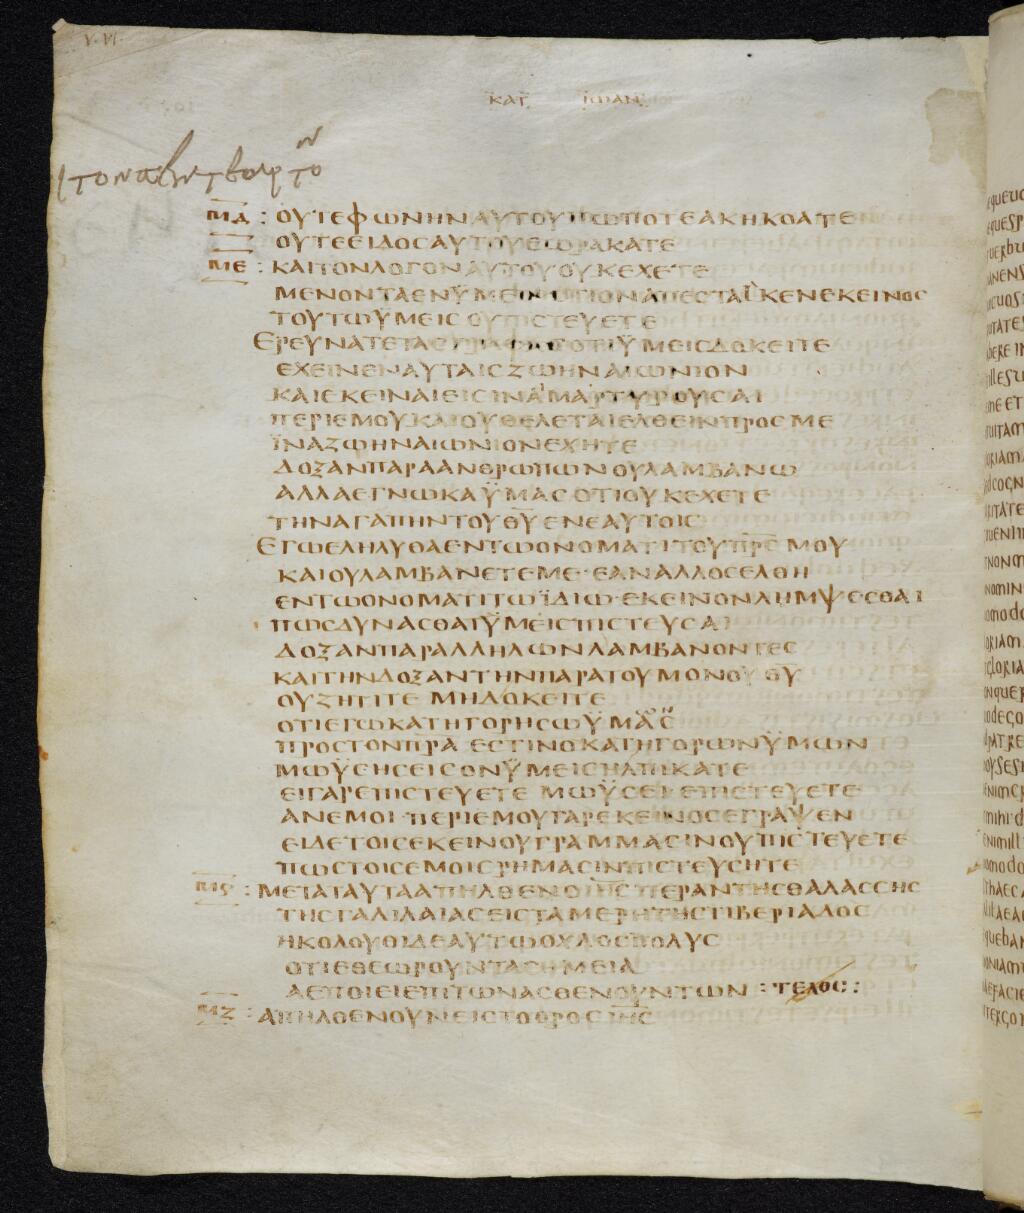 V·VI·
ΚΑΤ ΙΩΑΝ
ΜΔ : ΟΥΤΕΦΩΝΗΝΑΥΤΟΥΠΩΠΟΤΕΑΚΗΚΟΑΤΕ
ΟΥΤΕΕΙΔΟΣΑΥΤΟΥΕΩΡΑΚΑΤΕ
ΜΕ : ΚΑΙΤΟΝΛΟΓΟΝΑΥΤΟΥΟΥΚΕΧΕΤΕ
ΜΕΝΟΝΤΑΕΝΫΜΕΙΝΟΤΙΟΝΑΠΕΣΤΑΙΚΕΝΕΚΕΙΝΟΣ
ΤΟΥΤΩΫΜΕΙΣ ΟΥΠΙΣΤΕΥΕΤΕ
ΕΡΕΥΝΑΤΕΤΑΣΓΡΑΦΑΣΟΤΙΫΜΕΙΣΔΟΚΕΙΤΕ
ΕΧΕΙΝΕΝΑΥΤΑΙΣΖΩΗΝΑΙΩΝΙΟΝ
ΚΑΙΕΚΕΙΝΑΙΕΙΣΙΝΑΙΜΑΡΤΥΡΟΥΣΑΙ
ΠΕΡΙΕΜΟΥΚΑΙΟΥΘΕΛΕΤΑΙΕΛΘΕΙΝΠΡΟΣΜΕ
ΪΝΑΖΩΗΝΑΙΩΝΙΟΝΕΧΗΤΕ
ΔΟΞΑΝΠΑΡΑΑΝΘΡΩΠΩΝΟΥΛΑΜΒΑΝΩ
ΑΛΛΑΕΓΝΩΚΑΫΜΑΣΟΤΙΟΥΚΕΧΕΤΕ
ΤΗΝΑΓΑΠΗΝΤΟΥΘΥΕΝΕΑΥΤΟΙΣ
ΕΓΩΕΛΗΛΥΘΑΕΝΤΩΟΝΟΜΑΤΙΤΟΥΠΡΣΜΟΥ
ΚΑΙΟΥΛΑΜΒΑΝΕΤΕΜΕ·ΕΑΝΑΛΛΟΣΕΛΘΗ
ΕΝΤΩΟΝΟΜΑΤΙΤΩΪΔΙΩ·ΕΚΕΙΝΟΝΛΗΜΨΕΣΘΑΙ
ΠΩΣΔΥΝΑΣΘΑΙΫΜΕΙΣΠΙΣΤΕΥΣΑΙ
ΔΟΞΑΝΠΑΡΑΛΛΗΛΩΝΛΑΜΒΑΝΟΝΤΕΣ
ΚΑΙΤΗΝΔΟΞΑΝΤΗΝΠΑΡΑΤΟΥΜΟΝΟΥΘΥ
ΟΥΖΗΤΙΤΕ ΜΗΔΟΚΕΙΤΕ
ΟΤΙΕΓΩΚΑΤΗΓΟΡΗΣΩΫΜΑΣ
ΠΡΟΣΤΟΝΠΡΑ ΕΣΤΙΝΟΚΑΤΗΓΟΡΩΝΫΜΩΝ
ΜΩΫΣΗΣΕΙΣΟΝΫΜΕΙΣΗΛΠΙΚΑΤΕ
ΕΙΓΑΡΕΠΙΣΤΕΥΕΤΕ ΜΩΫΣΕΙ ΕΠΙΣΤΕΥΕΤΕ
ΑΝΕΜΟΙ·ΠΕΡΙΕΜΟΥΓΑΡΕΚΕΙΝΟΣΕΓΡΑΨΕΝ
ΕΙΔΕΤΟΙΣΕΚΕΙΝΟΥΓΡΑΜΜΑΣΙΝΟΥΠΙΣΤΕΥΕΤΕ
ΠΩΣΤΟΙΣΕΜΟΙΣΡΗΜΑΣΙΝΠΙΣΤΕΥΣΗΤΕ
Μϛ : ΜΕΤΑΤΑΥΤΑΑΠΗΛΘΕΝΟΙΗΣΠΕΡΑΝΤΗΣΘΑΛΑΣΣΗΣ
ΤΗΣΓΑΛΙΛΑΙΑΣΕΙΣΤΑΜΕΡΗΤΗΣΤΙΒΕΡΙΑΔΟΣ
ΗΚΟΛΟΥΘΙΔΕΑΥΤΩΟΧΛΟΣΠΟΛΥΣ
ΟΤΙΕΘΕΩΡΟΥΝΤΑΣΗΜΕΙΑ
ΑΕΠΟΙΕΙΕΠΙΤΩΝΑΣΘΕΝΟΥΝΤΩΝ :ΤΕΛΟΣ:
ΜΖ : ΑΠΗΛΘΕΝΟΥΝΕΙΣΤΟΟΡΟΣΙΗΣ